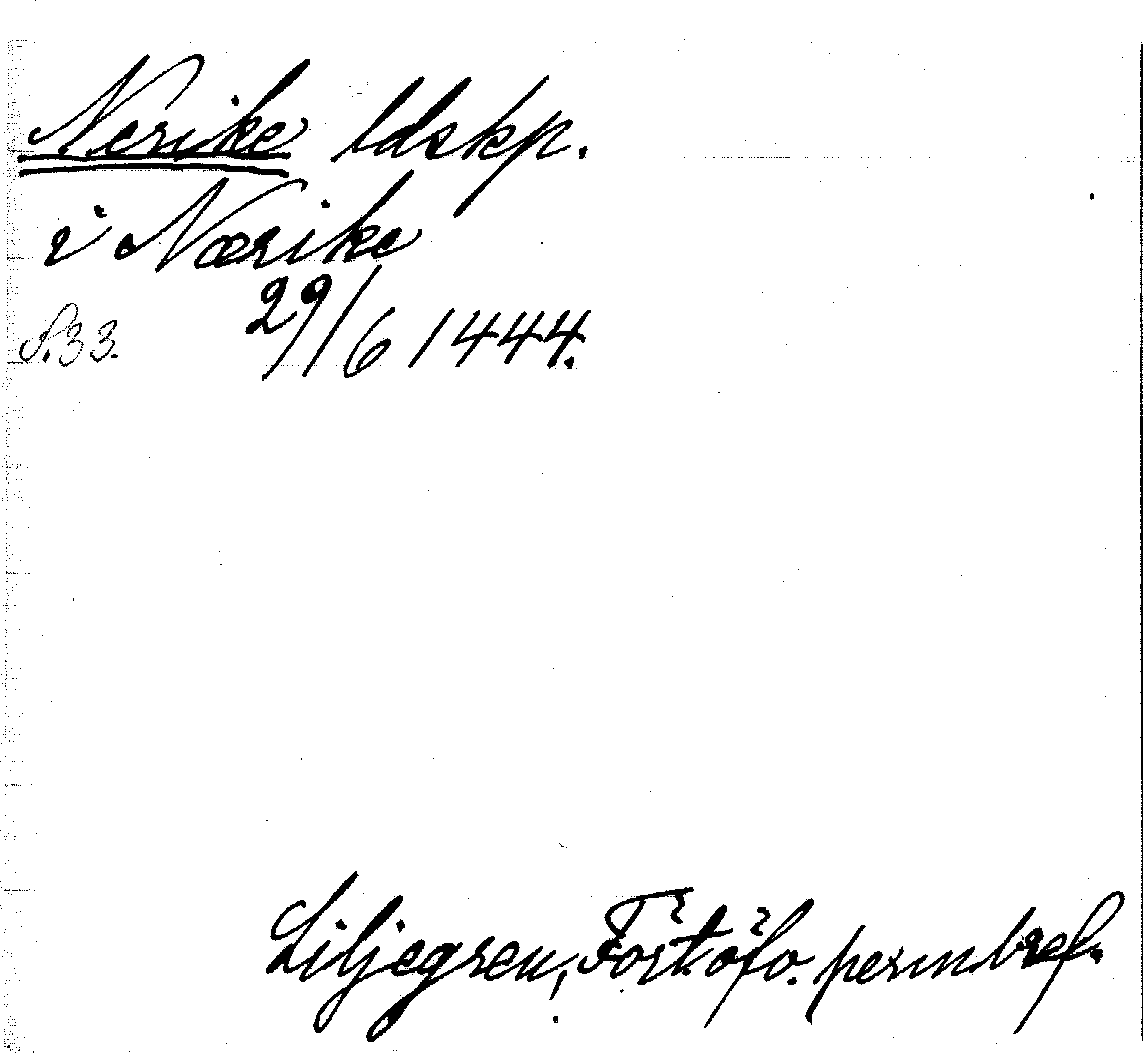 Nerike ldskp.
i Nærike
29/6 1444.
S.33.
Liljegren, Fört öfv. permbref.